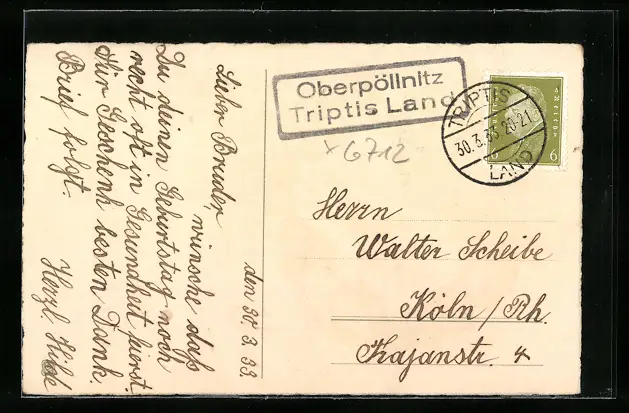 den 30.3.33.
Lieber Bruder,
wünsche daß
Du deinen Geburtstag noch
recht oft in Gesundheit feierst.
Für Geschenk besten Dank.
Brief folgt.
Herzl. Hilde
Oberpöllnitz
Triptis Land
TRIPTIS
30.3.33.20-21
LAND
6 6
x 6712
Herrn
Walter Scheibe
Köln / Rh.
Kajanstr. 4